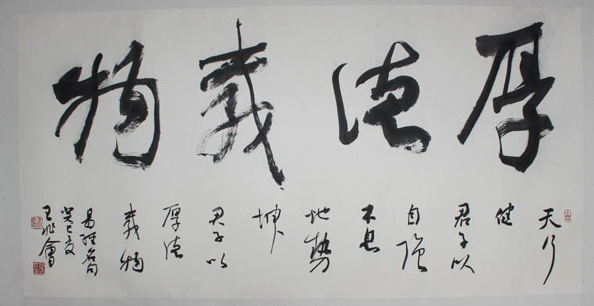 厚德载物
天行
健
君子以
自强
不息
地势
坤
君子以
厚德
载物
易经名句
癸巳夏